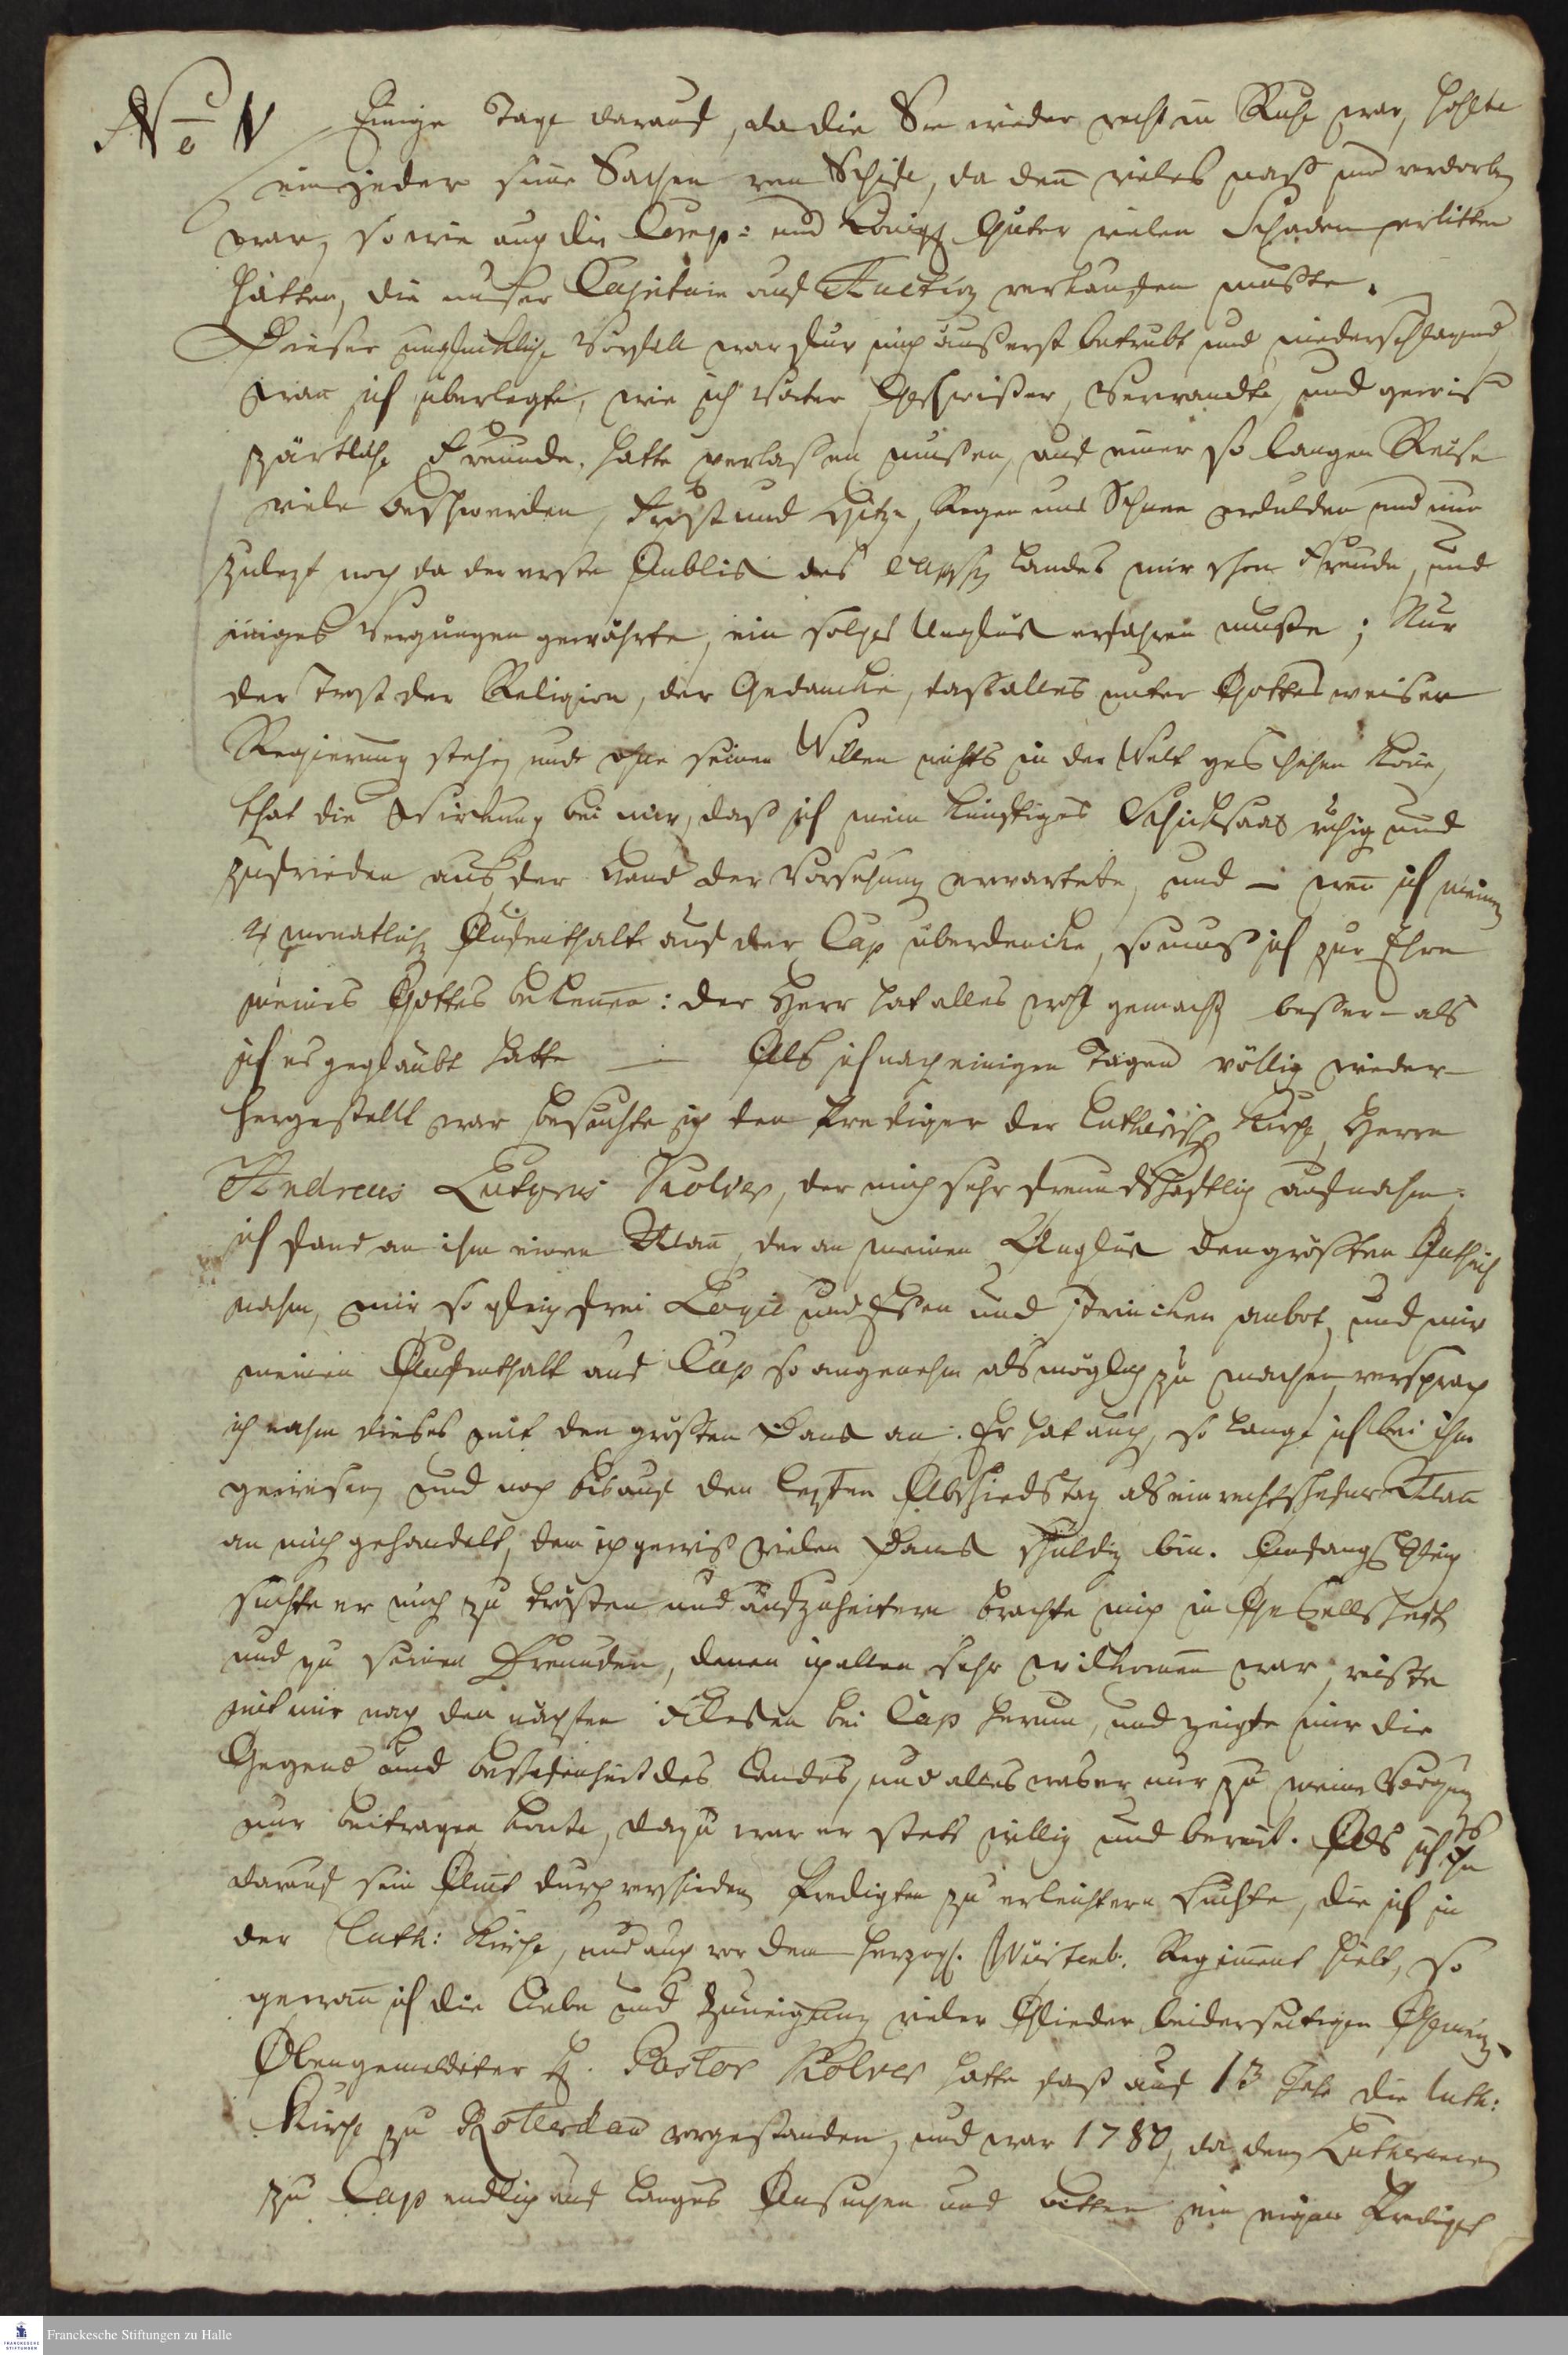 No V Einige Tage darauf, da die See wieder recht in Ruhe war, hohlte
ein jeder seine Sachen vom Schife, da den̄ vieles naß und verdorben
war, so wie auch die Comp: und Königs Güter vielen Schaden erlitten
hätten, die unser Capitain auf Auction verkaufen muste.
Dieser unglückliche Vorfall war für mich äußerst betrübt und niederschlagend
wan̄ ich überlegte, wie ich Väter Geschwister, Verwandte, und gewis
zärtliche Freunde hatte verlaßen müßen, auf einer so langen Reise
viele beschwerden, Frost und Hitze, Regen und Schnee erdulden und nun
zulezt noch da der erste Anblik des Landes mir schon Freude, und
einiges Vergnügen gewährte, ein solches Unglük erfahren muste; Nur
der Trost der Religion, der Gedancke, daß alles unter Gottes weisen
Regierung stehe, und ohne seinen Willen nichts in der Welt geschehen kön̄e,
that die Wirckung bei mir, daß ich mein künftiges Schicksaal ruhig und
zufrieden aus der Hand der Vorsehung erwartete, und – wen̄ ich meinen
4 monatlichen Aufenthalt auf der Cap überdencke, so muß ich zur Ehre
meines Gottes beken̄en: der Herr hat alles wohl gemacht besser – als
ich es geglaubt hatte – Als ich nach einigen Tagen völlig wieder-
hergestellt war besuchte ich den Prediger der Lutherischen Kirche, Herrn
Andreas Lutgerus Kolver, der mich sehr freundschaftlich aufnahm.
ich fand an ihm einen Man̄, der an meinen Unglük den größten Antheil
nahm, mir so gleich frei Logie und Eßen und Trincken anbot, und mir
meinen Aufenthalt auf Cap so angenehm als möglich zu machen versprach
ich nahm dieses mit den größten Dank an. Er hat auch, so lange ich bei ihm
gewesen, und noch bis auf den lezten Abschiedstag als ein rechtschafner Man̄
an mich gehandelt, dem ich gewiß vielen Dank schuldig bin. Anfangs gleich
suchte er mich zu trösten und aufzuheitern brachte mich in Gesellschaft
und zu seinen Freunden, denen ich allen sehr wilkommen war, reiste
mit mir nach den nächsten bei Cap herum, und zeigte mir die
Gegend und beschafenheit des Landes, und alles was er nur zu meinem Vergnügen
nur beitragen konte, dazu war er stets willig und bereit. Als ich es ihn
darauf sein Amt durch verschiedene Predigten zu erleichtern suchte, die ich in
der Luth: Kirche, und auch vor dem Herzogl. Würtenb. Regiment hielt, so
gewan̄ ich die Liebe und Zuneigung vieler Glieder beiderseitigen Gemeinen.
Obengemeldeter H. Pastor Kolver hatte fast auf 13 Jahr die luth:
Kirche zu Rotterdam vorgestanden, und war 1780, da den Lutheranern
zu Cap endlich auf langes Ansuchen und bitten ein eigner Prediger
Franckesche Stiftungen zu Halle